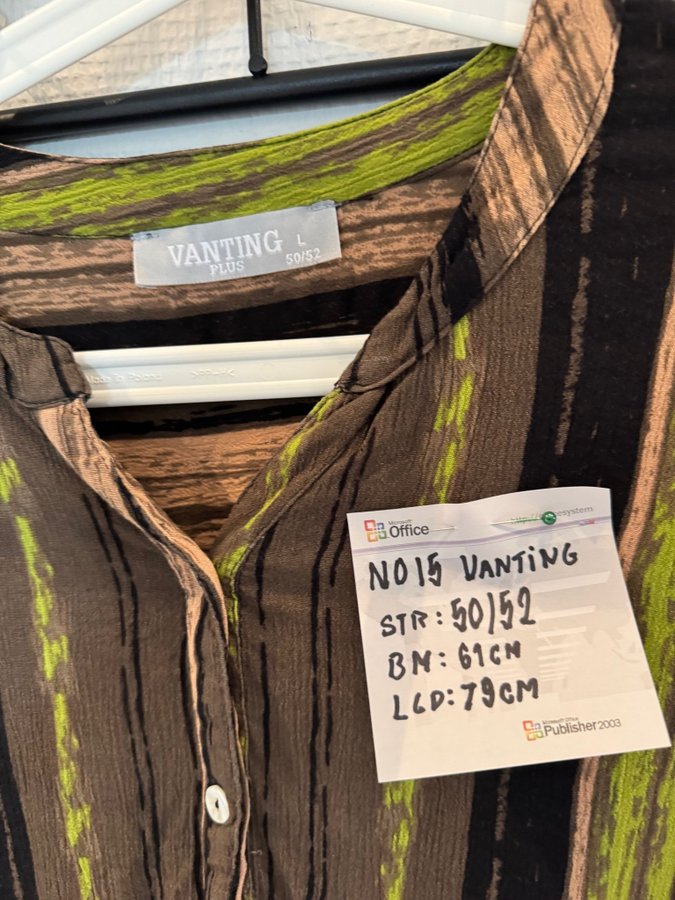 VANTING L
PLUS 50/52
Made in Poland
Microsoft
Office
esystem
NO15 VANTING
STR: 50/52
BM: 61CM
LGD: 79CM
Microsoft Office
Publisher 2003